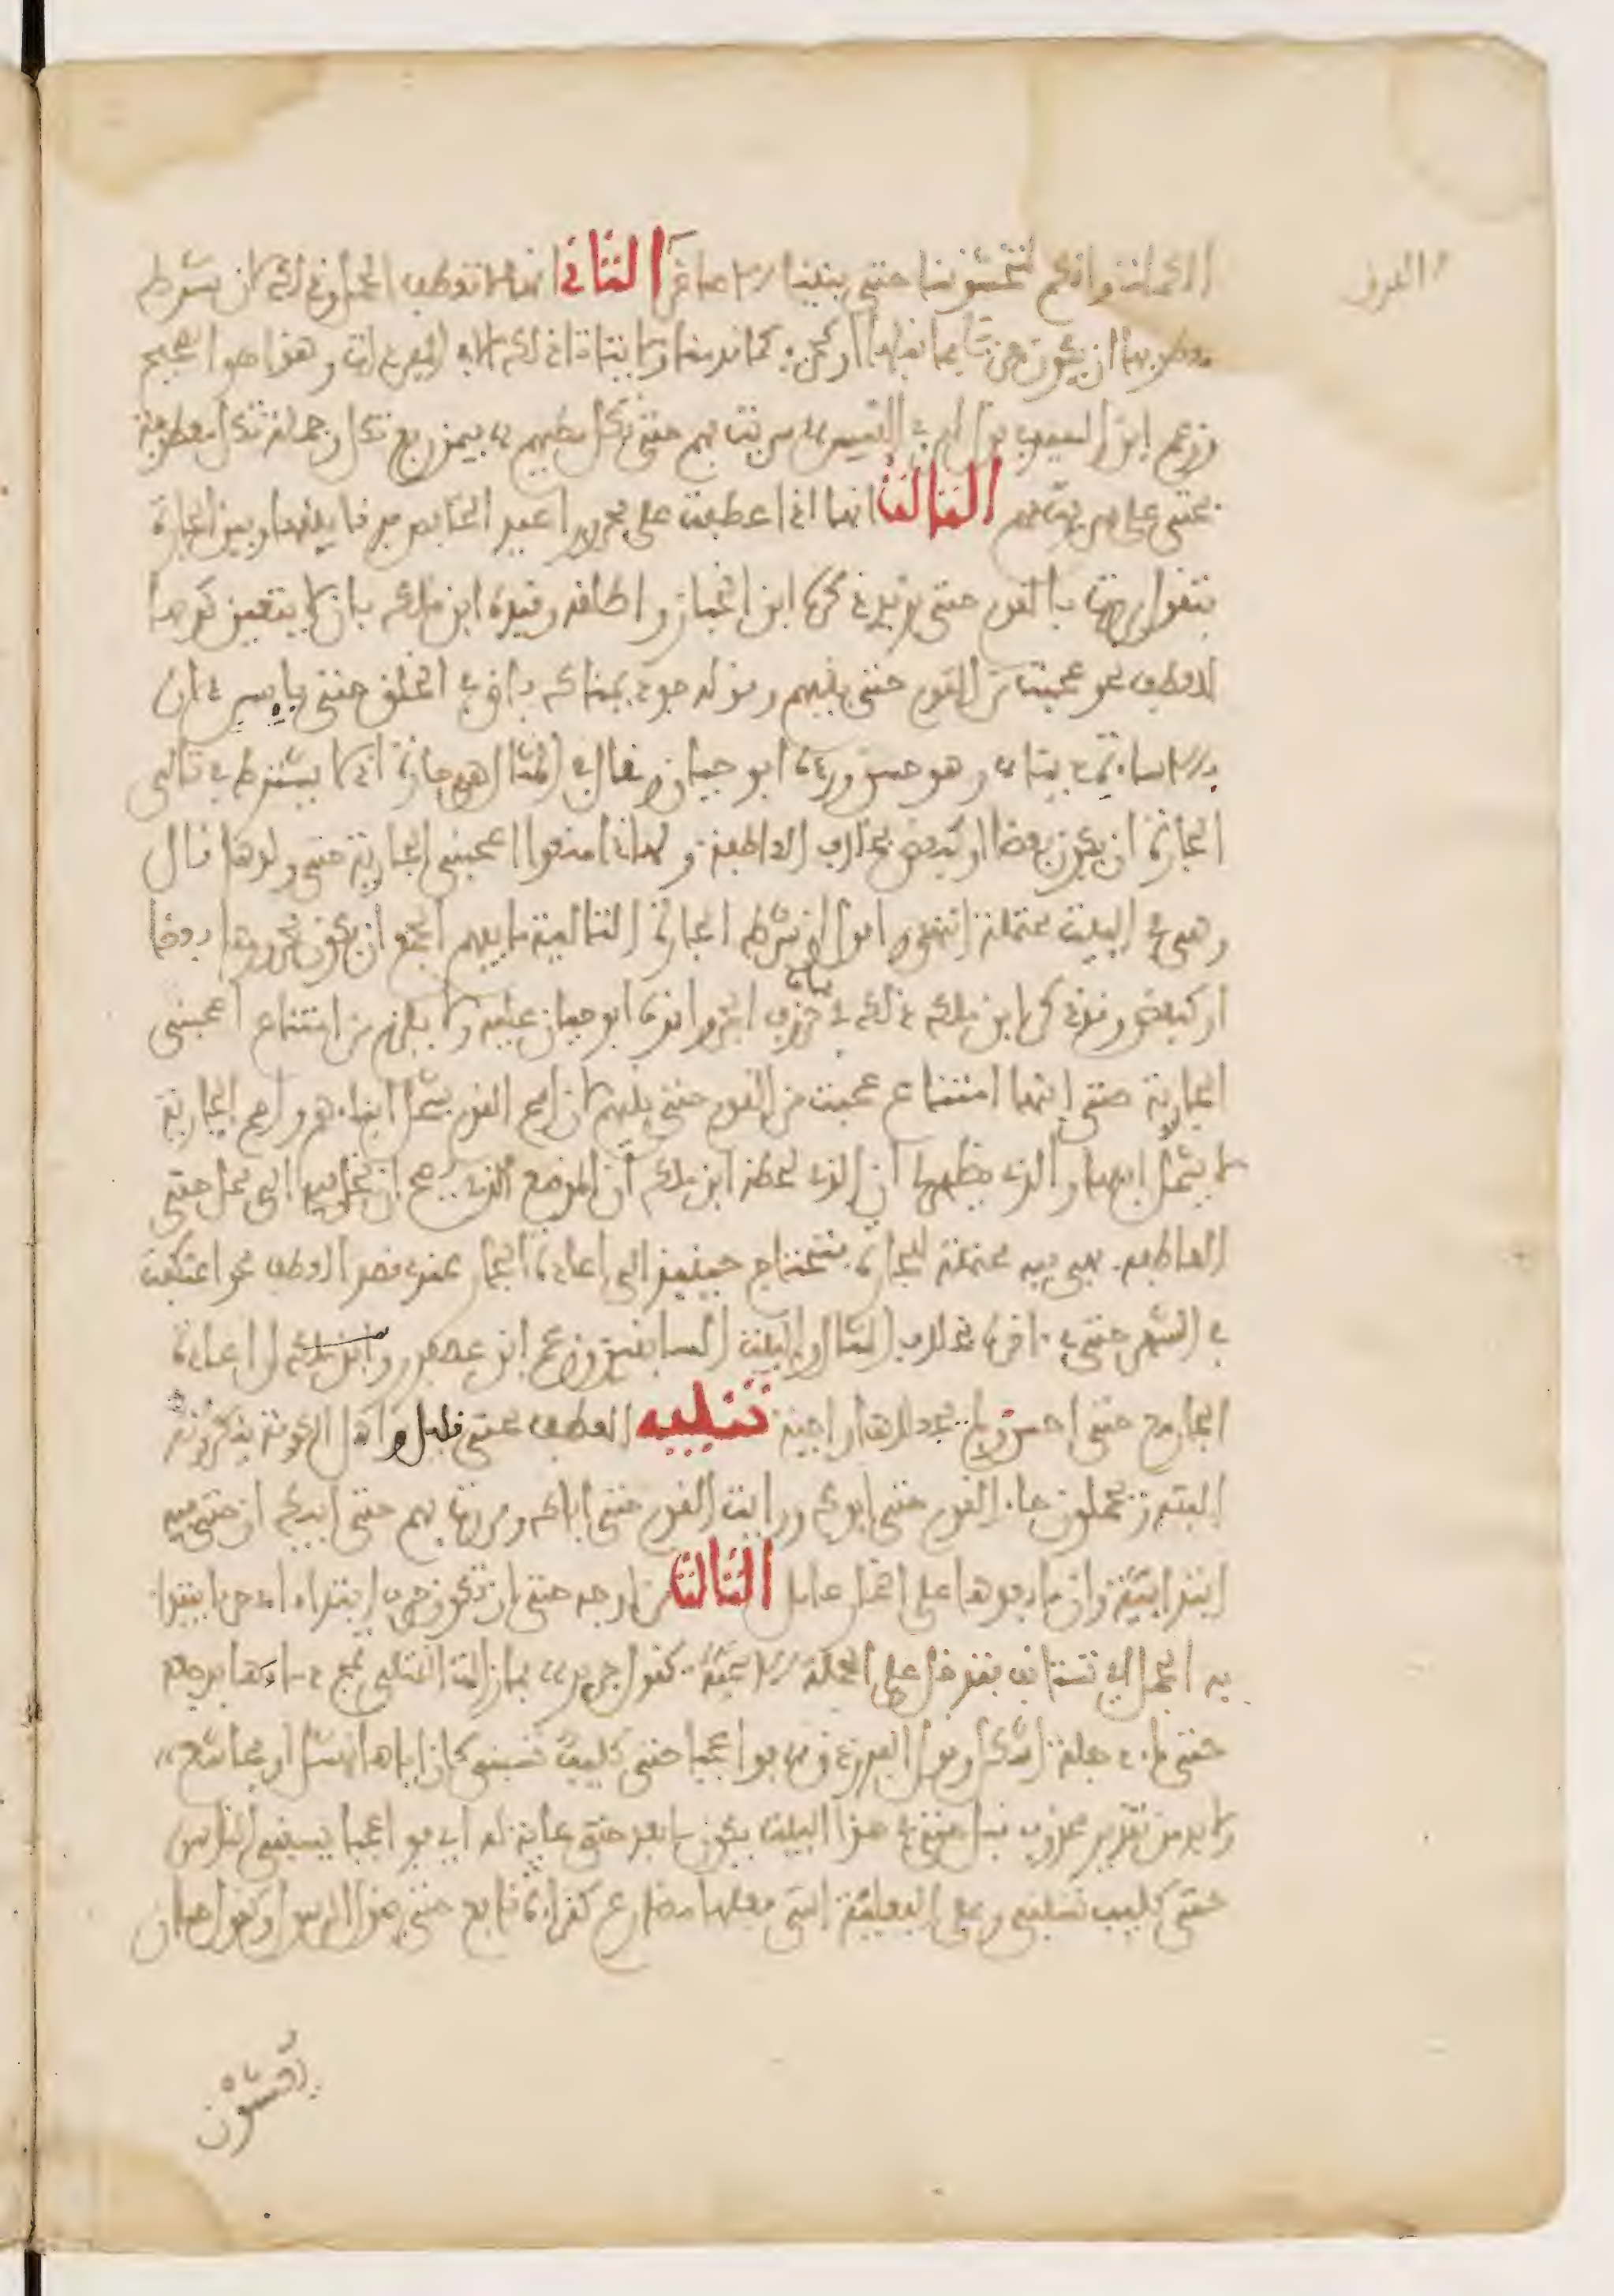 الكماة فانتم لتخشوننا حتى بنينا الاصاغرا الثاني انها لا تعطف الجمل وذلك لان شرط
معطوفها ان يكون جزءا مما قبلها او كجزء كما قدمنا ولا يتاتى ذلك الا في المفردات وهذا هو الصحيح
وزعم ابن السيد في قول امرئ القيس سريت بهم حتى تكل مطيهم فيمن رفع تكل ان جملة تكل معطوفة
بحتى على سريت بهم الثالث انها اذا عطفت على مجرور اعيد الخافض فرقا بينها وبين الجارة
فتقول مررت بالقوم حتى بزيد ذكر ذلك ابن الخباز واطلقه وقيده ابن ملك بان لا يتعين كونها
للعطف نحو عجبت من القوم حتى بنيهم وقوله جود يمناك فاض في الخلق حتى بايس دان
بالاساءة دينا وهو حسن ورده ابو حيان وقال في المثال هي جارة اذ لا يشترط في تالي
الجارة ان يكون بعضا او كبعض بخلاف العاطفة ولهذا منعوا اعجبتني الجارية حتى ولدها قال
وهي في البيت محتملة انتهى واقول ان شرط الجارة التالية ما يفهم الجمع ان يكون مجرورها بعضا
او كبعض وقد ذكر ابن ملك ذلك في باب حروف الجر واقره ابو حيان عليه ولا يلزم من امتناع اعجبتني
الجارية حتى ابنها امتناع عجبت من القوم حتى بنيهم لان اسم القوم يشمل ابناءهم واسم الجارية
لا يشمل ابنها والذي يظهر لي ان الذي لحظه ابن ملك ان الموضع الذي يصح ان تحل فيه الى محل حتى
العاطفة فهي فيه محتملة للجارة فتحتاج حينئذ الى اعادة الجار عند قصد العطف نحو اعتكفت
في الشهر حتى في ءاخره بخلاف المثال والبيت السابقين وزعم ابن عصفور ان اعادة
الجار مع حتى احسن ولم يجعلها واجبة تنبيه العطف بحتى قليل واهل الكوفة ينكرونه
البتة ويحملون جاء القوم حتى ابوك ورايت القوم حتى اباك ومررت بهم حتى ابيك ان حتى فيه
ابتدائية وان ما بعدها على اضمار عامل الثالث من اوجه حتى ان تكون حرف ابتداء اي حرفا يبتدا
به الجمل اي تستانف فتدخل على الجملة الاسمية كقول جرير فما زالت القتلى تمج دماءها بدجلة
حتى ماء دجلة اشكل وقول الفرزدق فوا عجبا حتى كليب تسبني كان اباها نهشل او مجاشع
ولا بد من تقدير محذوف قبل حتى في هذا البيت يكون ما بعد حتى غاية له اي فوا عجبا يسبني الناس
حتى كليب تسبني وعلى الفعلية التي فعلها مضارع كقراءة نافع حتى يقول الرسول وكقول حسان
يغشون